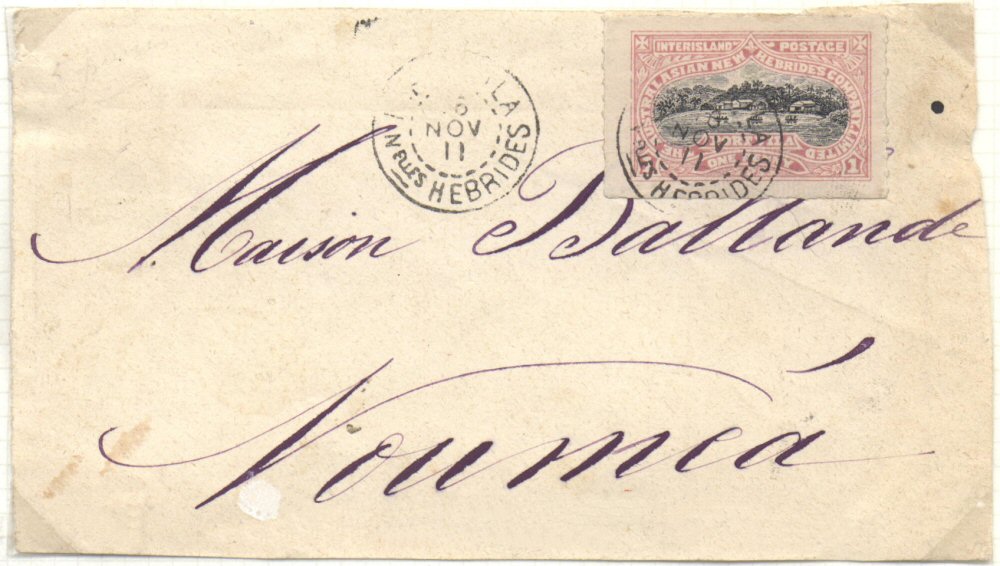 INTERISLAND POSTAGE
AUSTRALASIAN NEW HEBRIDES COMPANY LIMITED
ONE
1
NOV
11
NELLES HEBRIDES
NOV
11
HEBRIDES
Maison Ballande
Nouméa